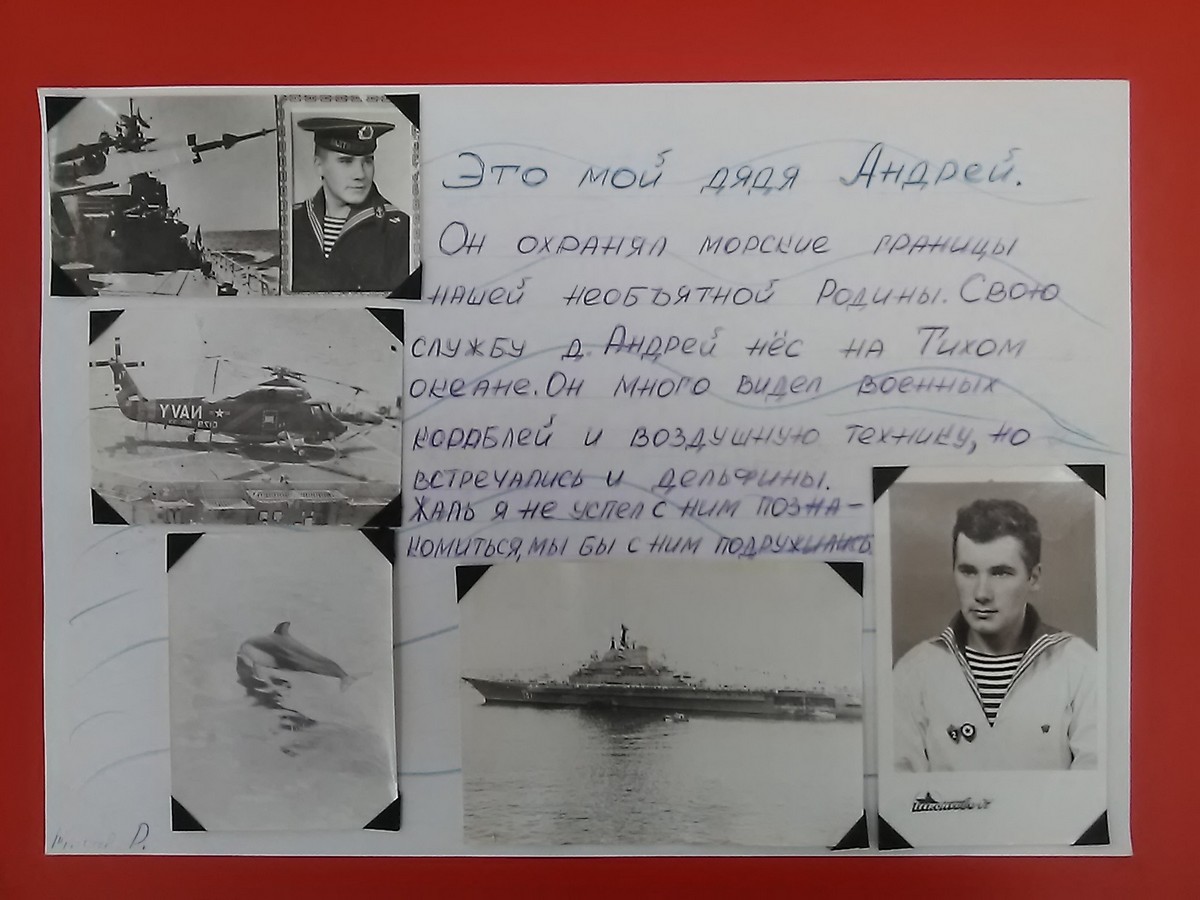 Это мой дядя Андрей.
Он охранял морские границы
нашей необъятной Родины. Свою
службу д. Андрей нёс на Тихом
океане. Он много видел военных
кораблей и воздушную технику, но
встречались и дельфины.
Жаль я не успел с ним позна-
комиться, мы бы с ним подружились.
NAVY
Р.